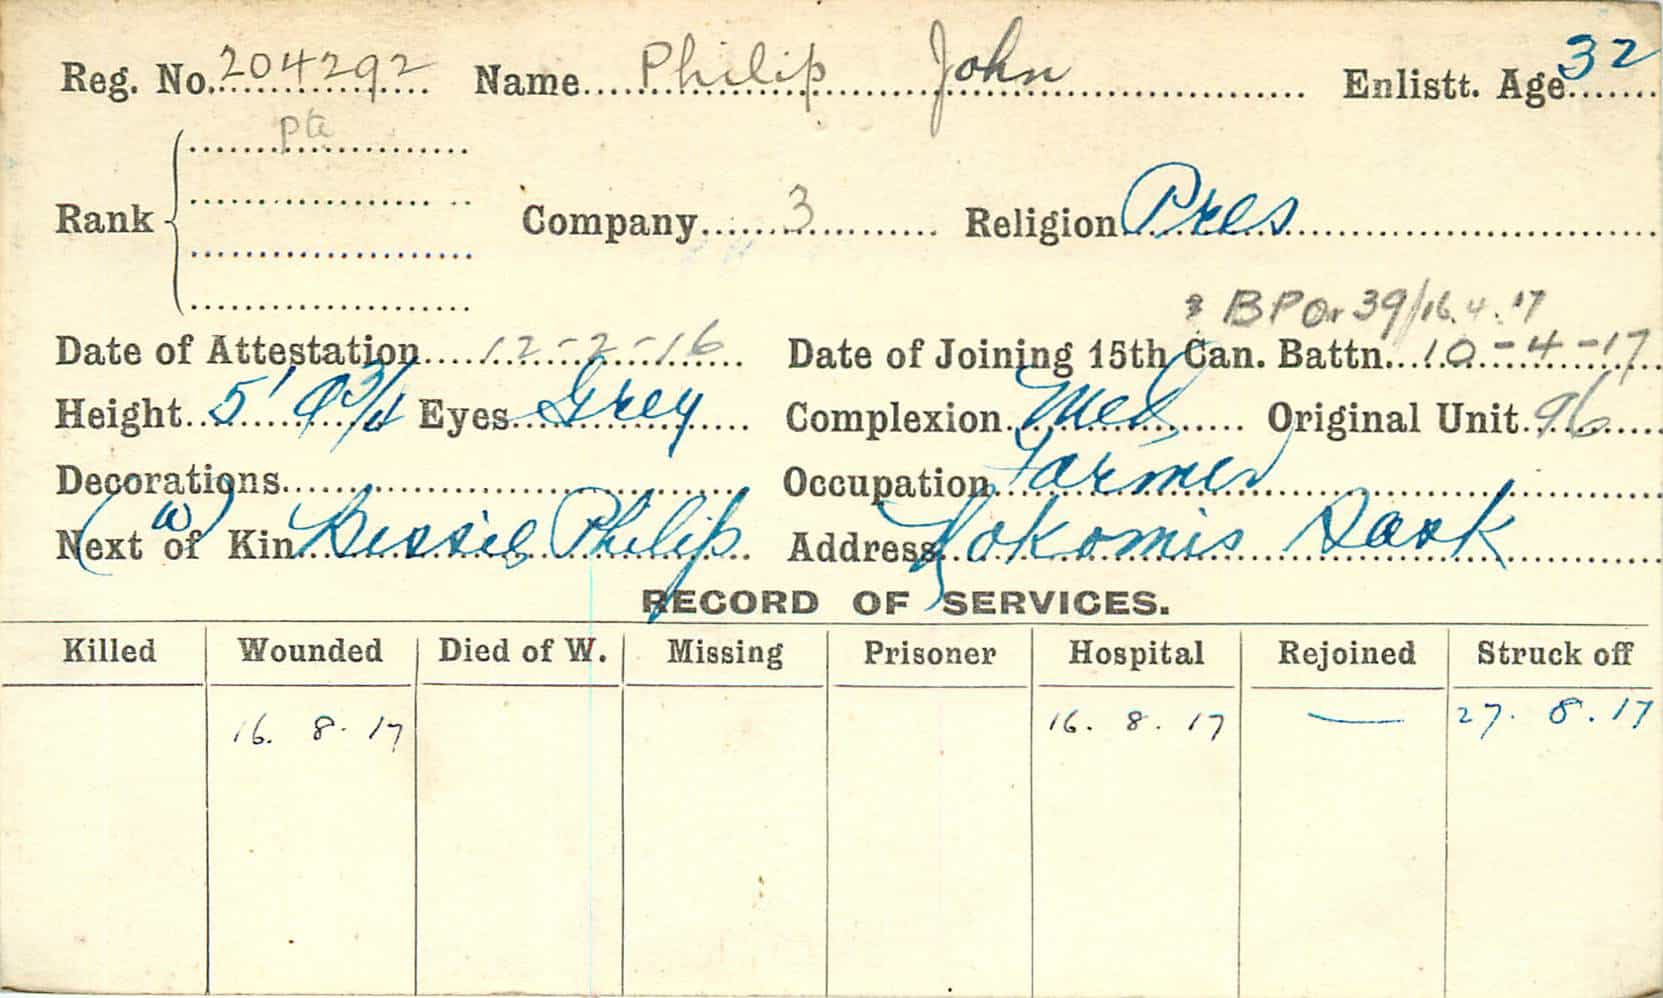 Reg. No. 204292 Name Philip John Enlistt. Age 32
Pte
Rank Company 3 Religion Pres
BPOr 39/16.4.17
Date of Attestation 12-2-16 Date of Joining 15th Can. Battn. 10-4-17
Height 5' 9 3/4 Eyes Grey Complexion Med Original Unit 96
Decorations Occupation Farmer
Next of Kin (W) Bessie Philip Address Nokomis Sask
RECORD OF SERVICES.
Killed Wounded Died of W. Missing Prisoner Hospital Rejoined Struck off
16. 8. 17 16. 8. 17 — 27. 8. 17